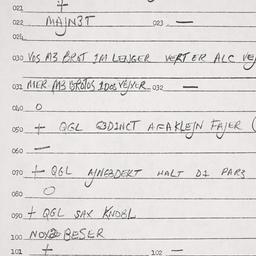 021 +
022 MAJN3T 023 —
024
030 VOS M3 BROT IM LENGER VERT ER ALC
031 MER M3 BROTOS IDOS VEJNER 032 —
040 O
050 + QGL A FAKLEJN FAJER (
060 —
070 + QGL AJNGEDEKT HALT DI PARS
080 O
090 + QGL SAX KNOBL
100 BESER
101 + 102 —